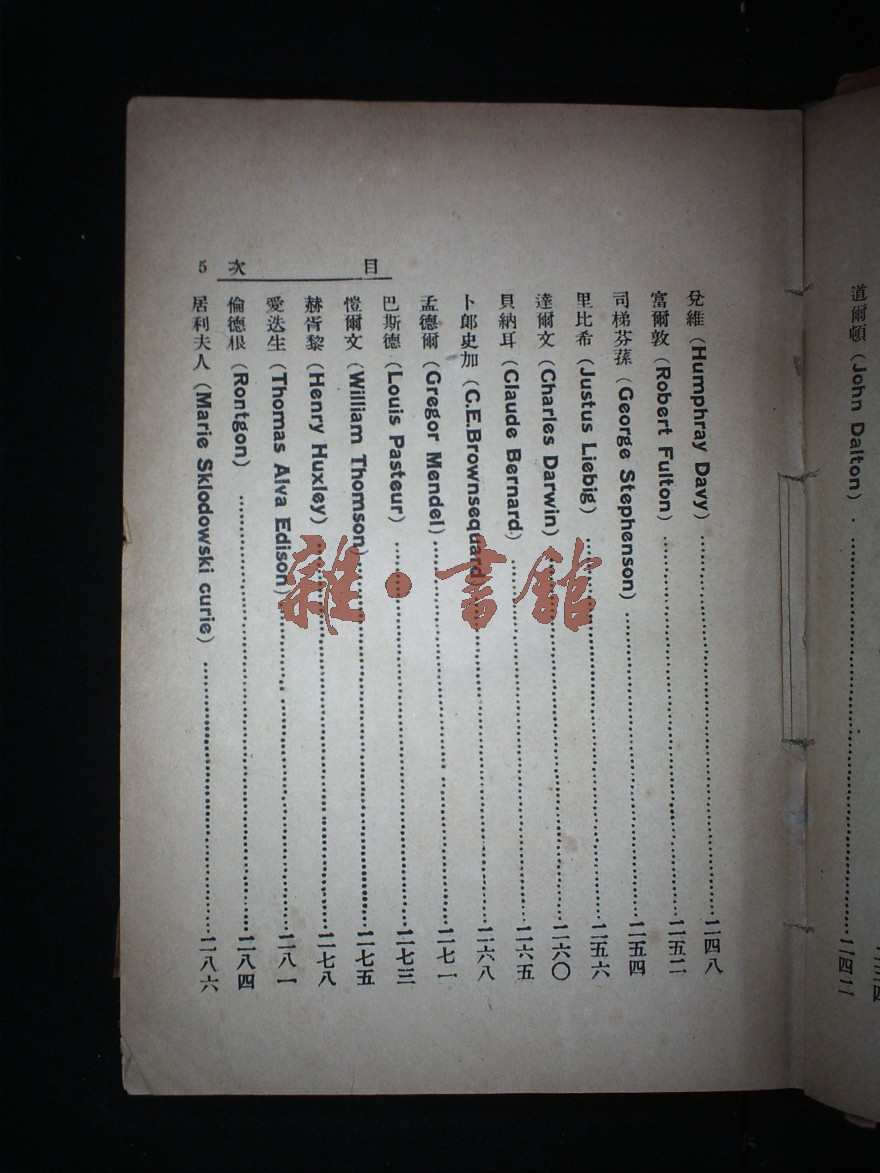 道爾頓 (John Dalton)……二四二
目次 5
兌維 (Humphray Davy)……二四八
富爾敦 (Robert Fulton)……二五二
司梯芬蓀 (George Stephenson)……二五四
里比希 (Justus Liebig)……二五六
達爾文 (Charles Darwin)……二六〇
貝納耳 (Claude Bernard)……二六五
卜郎史加 (C.E.Brownsequard)……二六八
孟德爾 (Gregor Mendel)……二七一
巴斯德 (Louis Pasteur)……二七三
愷爾文 (William Thomson)……二七五
赫胥黎 (Henry Huxley)……二七八
愛迭生 (Thomas Alva Edison)……二八一
倫德根 (Rontgon)……二八四
居利夫人 (Marie Sklodowski curie)……二八六
雜·書館